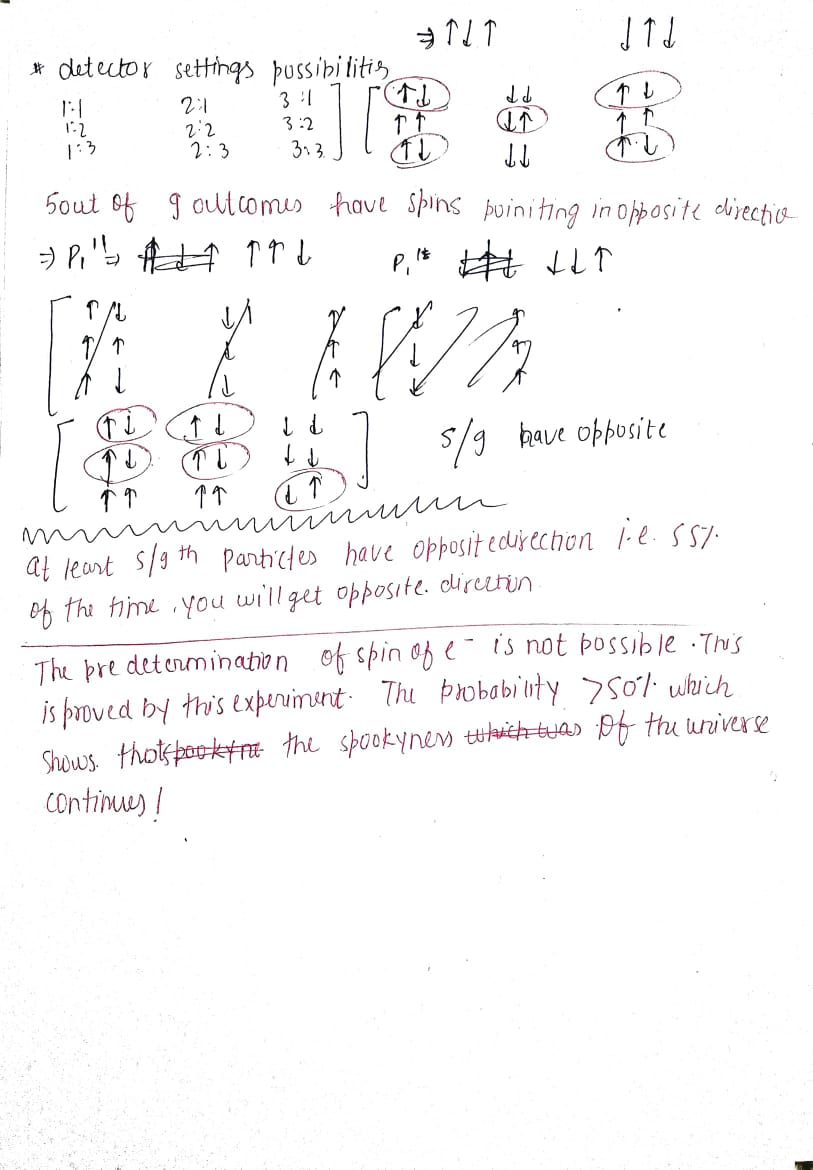 ⇒ ↑↓↑ ↓↑↓
* detector settings possibilities
1:1 2:1 3:1 ] [ ↑↓ ↓↓ ↑↓
1:2 2:2 3:2 ↑↑ ↓↑ ↑↑
1:3 2:3 3:3 ↑↓ ↓↓ ↑↓
5out of 9 outcomes have spins poiniting in opposite directio
⇒ P₁" ⇒ ↑↑↓ P₁ is ↓↓↑
[ ↑↓ ↑↓ ↓↓ ]
↑↓ ↑↓ ↓↓ 5/9 have opposite
↑↑ ↑↑ ↓↑
at least 5/9th Particles have opposite direction i.e. 55%
of the time, you will get opposite. direction.
The pre determination of spin of e⁻ is not possible. This
is proved by this experiment. The probability >50% which
shows. that the spookyness of the universe
continues!